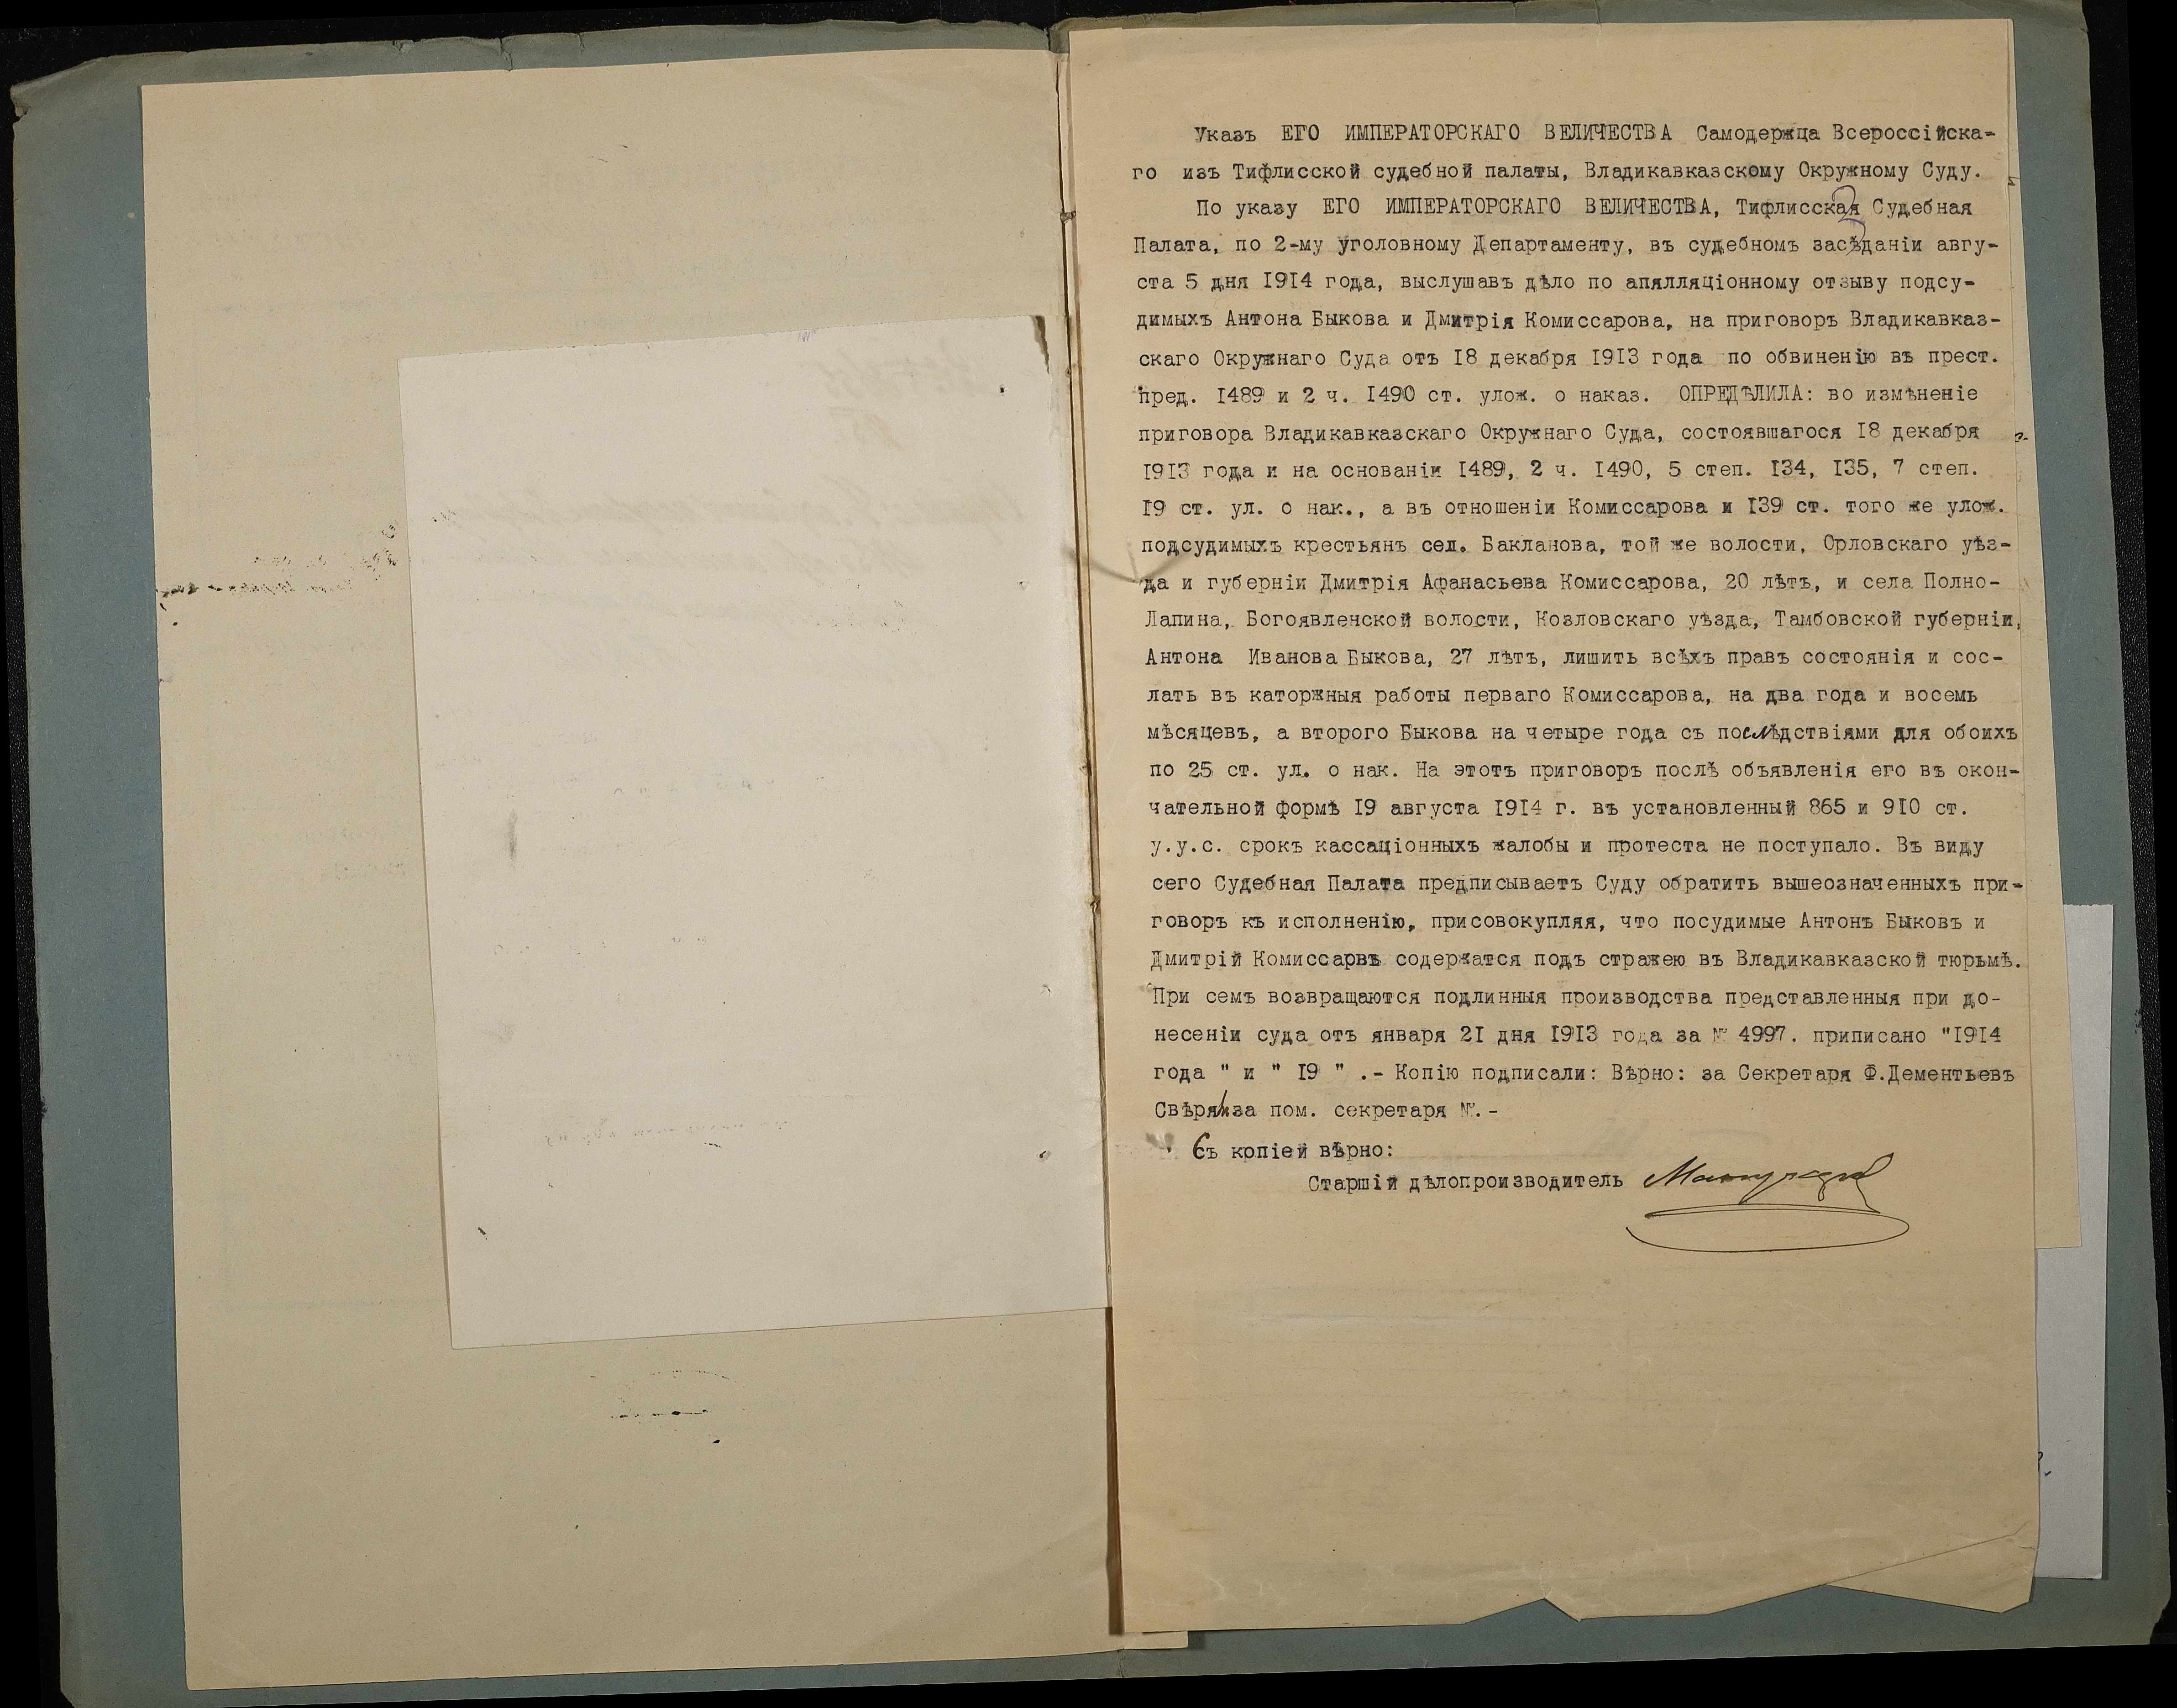 Указъ ЕГО ИМПЕРАТОРСКАГО ВЕЛИЧЕСТВА Самодержца Всероссійска-
го изъ Тифлисской судебной палаты, Владикавказскому Окружному Суду.
2
По указу ЕГО ИМПЕРАТОРСКАГО ВЕЛИЧЕСТВА, Тифлисская Судебная
Палата, по 2-му уголовному Департаменту, въ судебномъ засѣданіи авгу-
ста 5 дня 1914 года, выслушавъ дѣло по апялляціонному отзыву подсу-
димыхъ Антона Быкова и Дмитрія Комиссарова, на приговоръ Владикавказ-
скаго Окружнаго Суда отъ 18 декабря 1913 года по обвиненію въ прест.
пред. 1489 и 2 ч. 1490 ст. улож. о наказ. ОПРЕДѢЛИЛА: во измѣненіе
приговора Владикавказскаго Окружнаго Суда, состоявшагося 18 декабря
1913 года и на основаніи 1489, 2 ч. 1490, 5 степ. 134, 135, 7 степ.
19 ст. ул. о нак., а въ отношеніи Комиссарова и 139 ст. того же улож.
подсудимыхъ крестьянъ сел. Бакланова, той же волости, Орловскаго уѣз-
да и губерніи Дмитрія Афанасьева Комиссарова, 20 лѣтъ, и села Полно-
Лапина, Богоявленской волости, Козловскаго уѣзда, Тамбовской губерніи,
Антона Иванова Быкова, 27 лѣтъ, лишить всѣхъ правъ состоянія и сос-
лать въ каторжныя работы перваго Комиссарова, на два года и восемь
мѣсяцевъ, а второго Быкова на четыре года съ послѣдствіями для обоихъ
по 25 ст. ул. о нак. На этотъ приговоръ послѣ объявленія его въ окон-
чательной формѣ 19 августа 1914 г. въ установленный 865 и 910 ст.
у.у.с. срокъ кассаціонныхъ жалобы и протеста не поступало. Въ виду
сего Судебная Палата предписываетъ Суду обратить вышеозначенныхъ при-
говоръ къ исполненію, присовокупляя, что посудимые Антонъ Быковъ и
Дмитрій Комиссарвъ содержатся подъ стражею въ Владикавказской тюрьмѣ.
При семъ возвращаются подлинныя производства представленныя при до-
несеніи суда отъ января 21 дня 1913 года за № 4997. приписано "1914
года " и " 19 " .- Копію подписали: Вѣрно: за Секретаря Ф.Дементьевъ
Свѣрялъ за пом. секретаря №.-
Съ копіей вѣрно:
Старшій дѣлопроизводитель